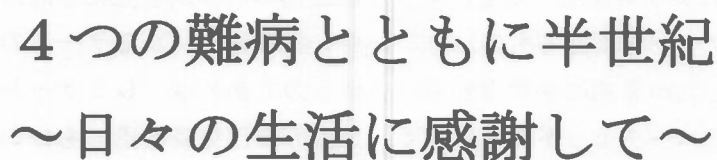 4つの難病とともに半世紀
～日々の生活に感謝して～